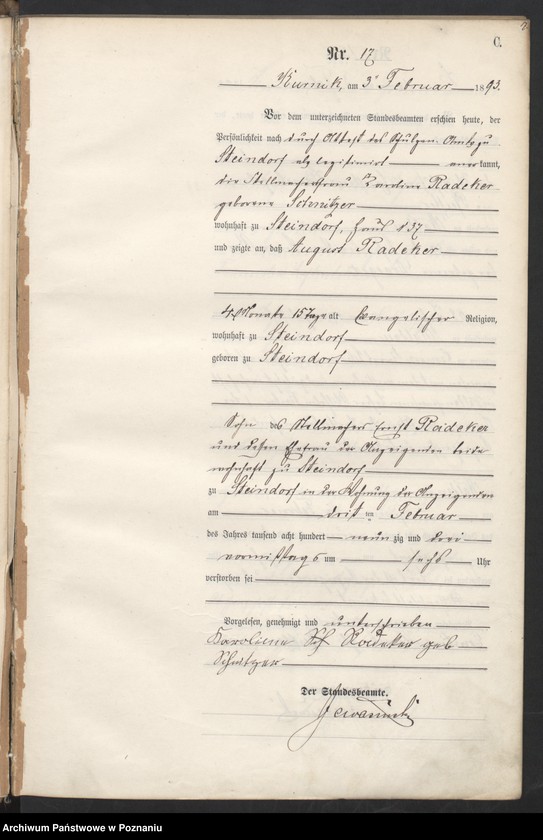 C.
Nr. 17
Kurnik, am 3ᵗ Februar 1893.
Vor dem unterzeichneten Standesbeamten erschien heute, der
Persönlichkeit nach durch Attest des Schulzen-Amts zu
Steindorf als legitimirt anerkannt,
die Stellmacherfrau Karoline Radeker
geborene Schnitzer
wohnhaft zu Steindorf, Haus № 37
und zeigte an, daß August Radeker
4 Monate 15 Tage alt Evangelischer Religion,
wohnhaft zu Steindorf
geboren zu Steindorf
Sohn des Stellmachers Ernst Radeker
und dessen Ehefrau der Anzeigenden beide
wohnhaft zu Steindorf
zu Steindorf in der Wohnung der Anzeigenden
am dritten Februar
des Jahres tausend acht hundert neunzig und drei
vormittags um sechs Uhr
verstorben sei
Vorgelesen, genehmigt und unterschrieben
Karoliene Radeker geb
Schnitzer
Der Standesbeamte.
Archiwum Państwowe w Poznaniu